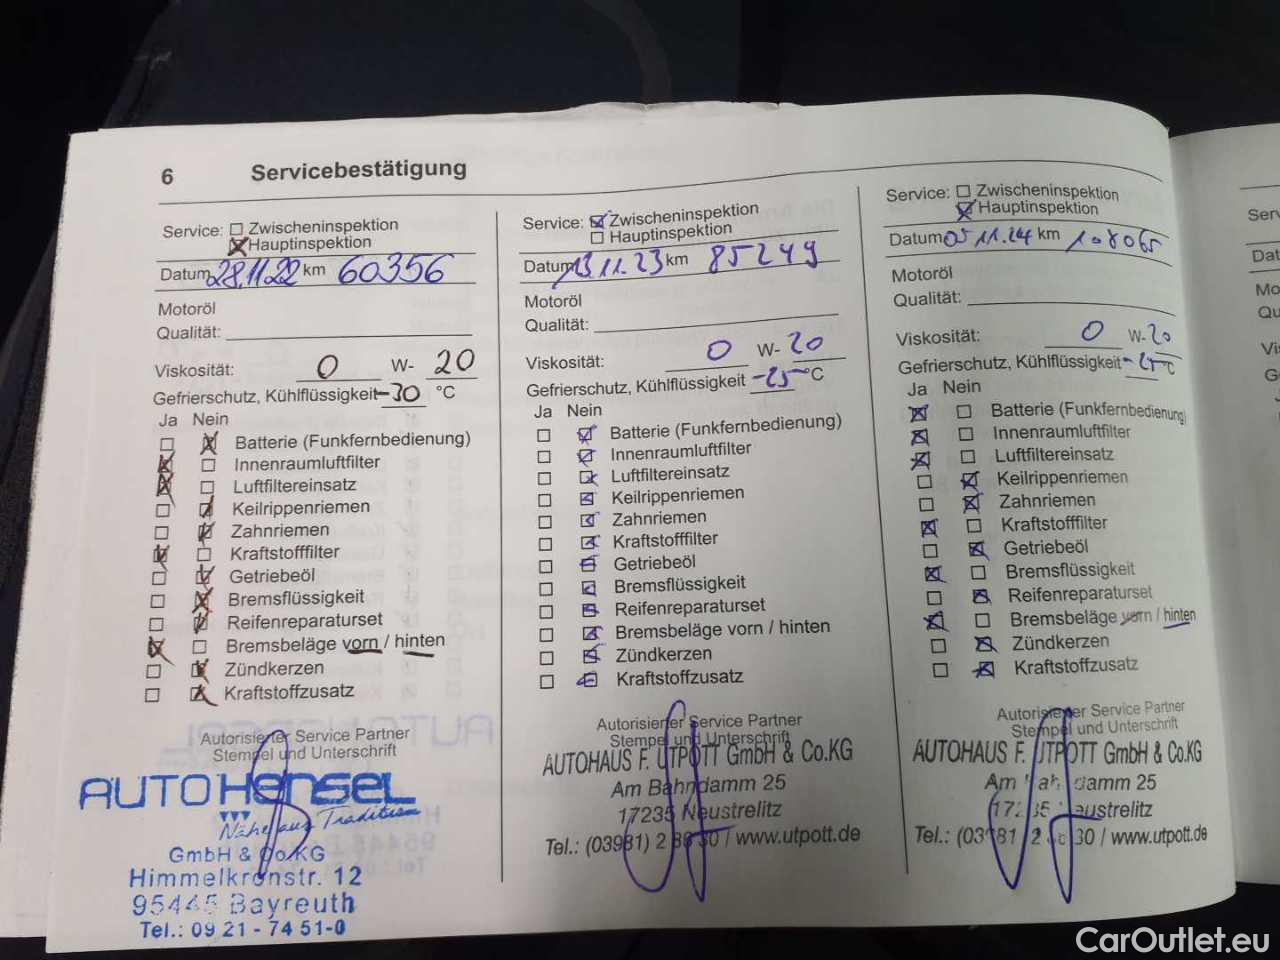 6 Servicebestätigung
Service: Zwischeninspektion
Hauptinspektion
Datum 28.11.22 km 60356
Motoröl
Qualität:
Viskosität: 0 W- 20
Gefrierschutz, Kühlflüssigkeit -30 °C
Ja Nein
Batterie (Funkfernbedienung)
Innenraumluftfilter
Luftfiltereinsatz
Keilrippenriemen
Zahnriemen
Kraftstofffilter
Getriebeöl
Bremsflüssigkeit
Reifenreparaturset
Bremsbeläge vorn / hinten
Zündkerzen
Kraftstoffzusatz
Autorisierter Service Partner
Stempel und Unterschrift
AUTO HENSEL
Nähe aus Tradition
GmbH & Co.KG
Himmelkronstr. 12
95445 Bayreuth
Tel.: 09 21 - 74 51-0
Service: Zwischeninspektion
Hauptinspektion
Datum 13.11.23 km 85249
Motoröl
Qualität:
Viskosität: 0 W- 20
Gefrierschutz, Kühlflüssigkeit -25 °C
Ja Nein
Batterie (Funkfernbedienung)
Innenraumluftfilter
Luftfiltereinsatz
Keilrippenriemen
Zahnriemen
Kraftstofffilter
Getriebeöl
Bremsflüssigkeit
Reifenreparaturset
Bremsbeläge vorn / hinten
Zündkerzen
Kraftstoffzusatz
Autorisierter Service Partner
Stempel und Unterschrift
AUTOHAUS F. UTPOTT GmbH & Co.KG
Am Bahndamm 25
17235 Neustrelitz
Tel.: (03981) 2 38 30 / www.utpott.de
Service: Zwischeninspektion
Hauptinspektion
Datum 05.11.24 km 108065
Motoröl
Qualität:
Viskosität: 0 W- 20
Gefrierschutz, Kühlflüssigkeit -25 °C
Ja Nein
Batterie (Funkfernbedienung)
Innenraumluftfilter
Luftfiltereinsatz
Keilrippenriemen
Zahnriemen
Kraftstofffilter
Getriebeöl
Bremsflüssigkeit
Reifenreparaturset
Bremsbeläge vorn / hinten
Zündkerzen
Kraftstoffzusatz
Autorisierter Service Partner
Stempel und Unterschrift
AUTOHAUS F. UTPOTT GmbH & Co.KG
Am Bahndamm 25
17235 Neustrelitz
Tel.: (03981) 2 38 30 / www.utpott.de
CarOutlet.eu